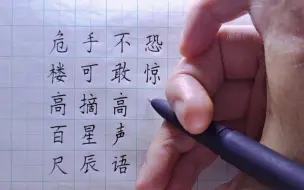 危楼高百尺
手可摘星辰
不敢高声语
恐惊